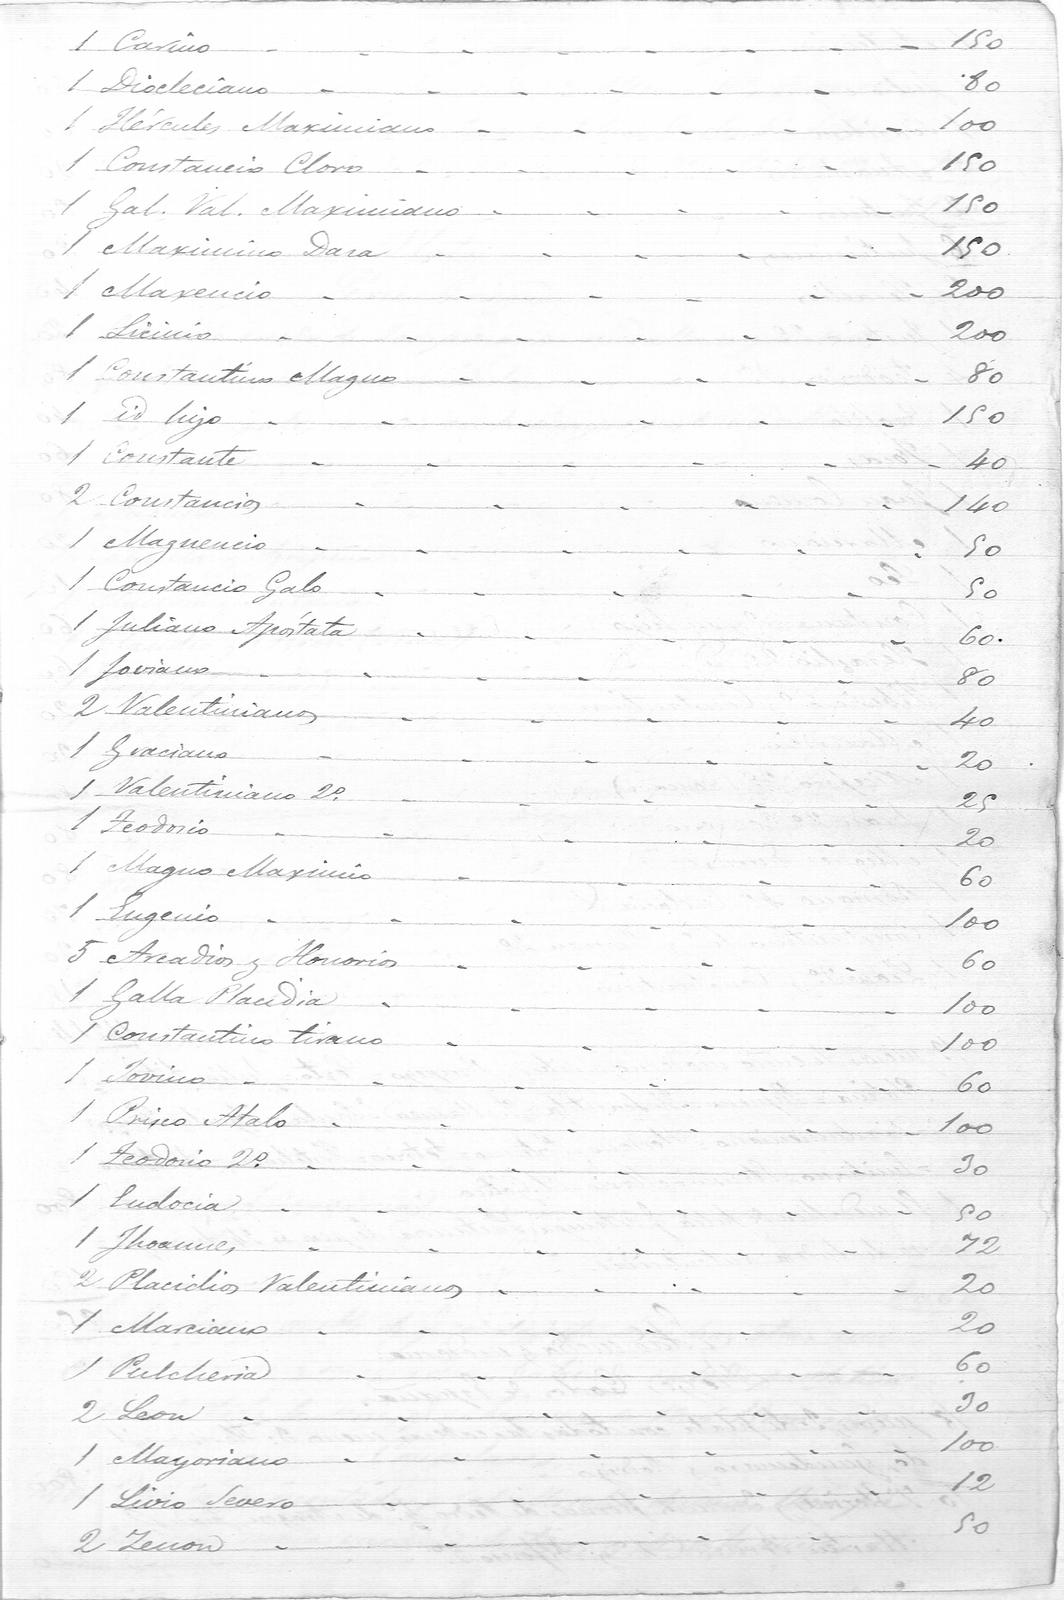 1 Carino - - - - - - 150
1 Diocleciano - - - - - - 80
1 Hércules Maximiano - - - - - 100
1 Constancio Cloro - - - - - 150
1 Gal. Val. Maximiano - - - - - 150
1 Maximino Daza - - - - - 150
1 Maxencio - - - - - - 200
1 Licinio - - - - - - 200
1 Constantino Magno - - - - - 80
1 id hijo - - - - - - 150
1 Constante - - - - - - 40
2 Constancios - - - - - 140
1 Magnencio - - - - - - 50
1 Constancio Galo - - - - - 50
1 Juliano Apóstata - - - - - 60.
1 Joviano - - - - - - 80
2 Valentinianos - - - - - 40
1 Graciano - - - - - - 20
1 Valentiniano 2º. - - - - - 25
1 Teodosio - - - - - - 20
1 Magno Maximio - - - - 60
1 Eugenio - - - - - - 100
5 Arcadios y Honorios - - - - 60
1 Galla Placidia - - - - - 100
1 Constantino tirano - - - - 100
1 Jovino - - - - - - 60
1 Prisco Atalo - - - - - - 100
1 Teodosio 2º. - - - - - - 30
1 Eudocia - - - - - - 50
1 Jhoannes - - - - - - 72
2 Placidios Valentinianos - - - - - 20
1 Marciano - - - - - - 20
1 Pulcheria - - - - - 60
2 Leon - - - - - - - 30
1 Mayoriano - - - - - - 100
1 Livio Severo - - - - - 12
2 Zenon - - - - - - 50